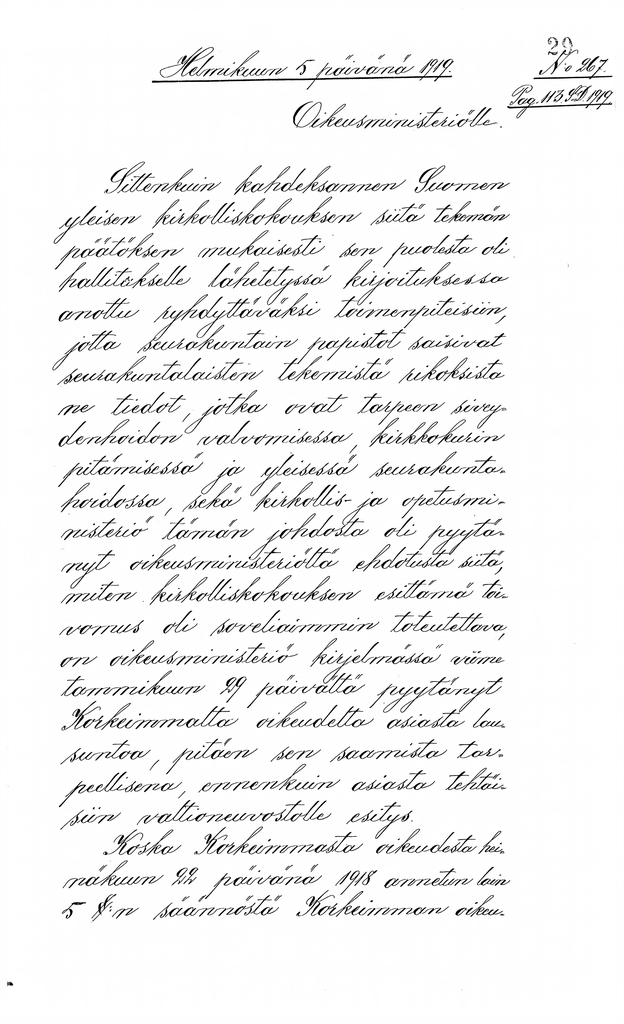 29
Helmikuun 5 päivänä 1919.
No 267.
Pag. 113 S.D. 1919.
Oikeusministeriölle.
Sittenkuin kahdeksannen Suomen
yleisen kirkolliskokouksen siitä tekemän
päätöksen mukaisesti sen puolesta oli
hallitukselle lähetetyssä kirjoituksessa
anottu ryhdyttäväksi toimenpiteisiin,
jotta seurakuntain papistot saisivat
seurakuntalaisten tekemistä rikoksista
ne tiedot, jotka ovat tarpeen sivey-
denhoidon valvomisessa, kirkkokurin
pitämisessä ja yleisessä seurakunta-
hoidossa, sekä kirkollis- ja opetusmi-
nisteriö tämän johdosta oli pyytä-
nyt oikeusministeriöltä ehdotusta siitä,
miten kirkolliskokouksen esittämä toi-
vomus oli soveliaimmin toteutettava,
on oikeusministeriö kirjelmässä viime
tammikuun 29 päivältä pyytänyt
Korkeimmalta oikeudelta asiasta lau-
suntoa, pitäen sen saamista tar-
peellisena, ennenkuin asiasta tehtäi-
siin valtioneuvostolle esitys.
Koska Korkeimmasta oikeudesta hei-
näkuun 22 päivänä 1918 annetun lain
5 §:n säännöstä Korkeimman oikeu-